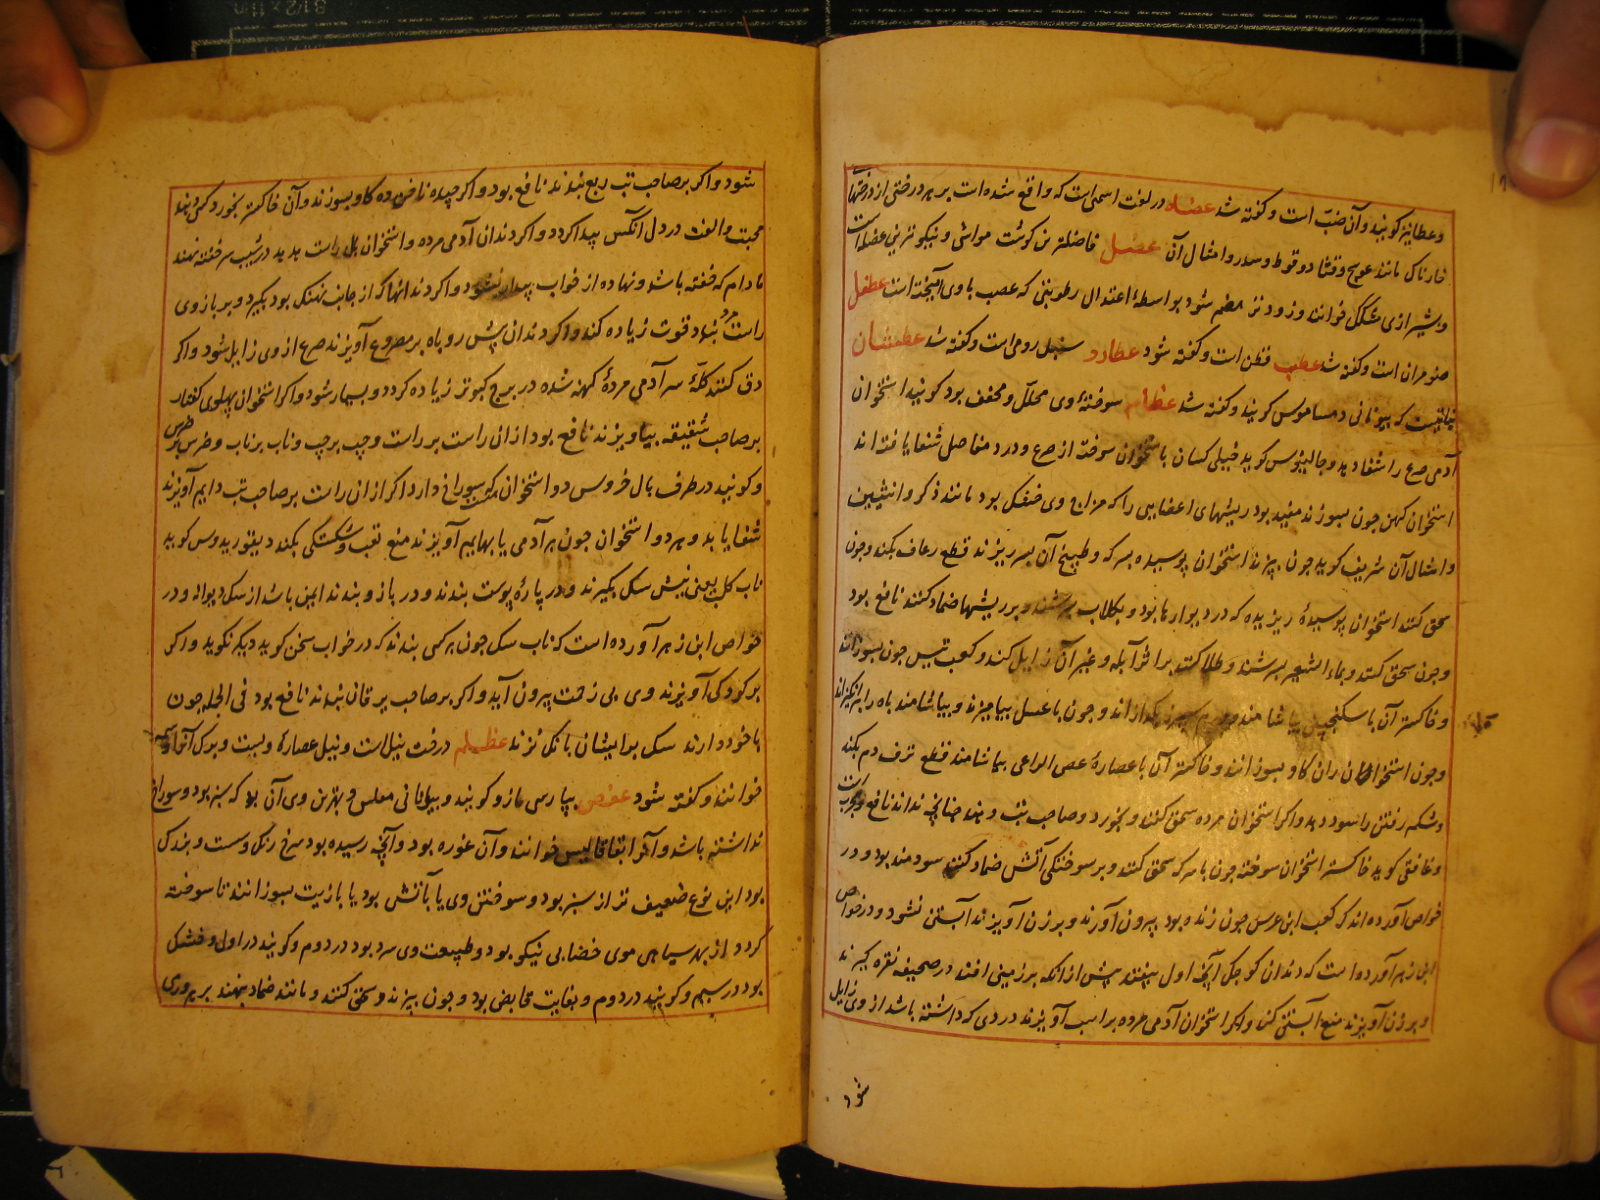 و عطا نیز گویند و آن ضبّ است و گفته شد عضاه در لغت اسمی است که واقع شده است بر هر درختی از درختها
خارناک مانند عوسج و قتاد و قوط و سدر و امثال آن عضل فاضلترین گوشت مواشی و نیکوترین عضله است
و بشیرازی خوانند و زودتر هضم شود بواسطهٔ اعتدال رطوبتی که عصب باوی آمیخته است عطفل
ضومران است و گفته شد عطب قطن است و گفته شود عطارد سنبل رومی است و گفته شد عطشان
نباتیست که بیونانی دمساموس گویند و گفته شد عظام سوختهٔ وی محلل و مجفف بود گویند استخوان
آدمی صرع را شفا دهد و جالینوس گوید خیلی کسان با استخوان سوخته از صرع و درد مفاصل شفا یافته اند
استخوان کهن چون بسوزند مفید بود ریشهای اعضایی را که مزاج وی خشک بود مانند ذکر و انثیین
و امثال آن شریف گوید چون بپزند استخوان پوسیده بسرکه و طبیخ آن بسر ریزند قطع رعاف بکند و چون
سحق کنند استخوان پوسیدهٔ ریزیده که در دیوارها بود و بگلاب بسرشند و بر ریشها ضماد کنند نافع بود
و چون سحق کنند و بماء الشعیر بسرشند و طلا کنند بر اثر آبله و غیر آن زایل کند و کعب تیس چون بسوزانند
و خاکستر آن با سکنجبین بیاشامند ورم سپرز بگدازاند و چون با عسل بیامیزند و بیاشامند باه را برانگیزاند
و چون استخوان ران گاو بسوزانند و خاکستر آن با عصارهٔ عصی الراعی بیاشامند قطع نزف دم بکند
و شکم رفتن را سود دهد و اگر استخوان مرده سحق کنند و بخورد صاحب تب دهند چنانچه نداند نافع و مجرب است
و غافقی گوید خاکستر استخوان سوخته چون با سرکه سحق کنند و بر سوختگی آتش ضماد کنند سودمند بود و در
خواص آورده اند که کعب ابن عرس چون زنده بود بیرون آورند و بر زن آویزند آبستن نشود و در خواص
ابن زهر آورده است که دندان کودک آنچه اول بیفتد پیش از آنکه بر زمین افتد در صحیفه نقره گیرند
و بر زن آویزند منع آبستنی کند و اگر استخوان آدمی مرده بر اسب آویزند دردی که داشته باشد از وی زایل
شود
شود و اگر بر صاحب تب ربع بندند نافع بود و اگر ناخن ده گاو بسوزند و آن خاکستر بخورد کسی دهند
محبت و الفت در دل آنکس پیدا گردد و اگر دندان آدمی مرده و استخوان بل راست هدهد در شیب سر خفته نهند
مادام که خفته باشد و نهاده از خواب بیدار نشود و اگر دندانها که از جانب نهنگ بود بگیرد و بر بازوی
راست مرد بندد قوت زیاده کند و اگر دندان پیش روباه بر مصروع آویزند صرع از وی زایل شود و اگر
دق کنند کلّهٔ سر آدمی مردهٔ کهنه شده در برج کبوتر زیاده گردد و بسیار شود و اگر استخوان پهلوی کفتار
بر صاحب شقیقه بیاویزند نافع بود از ان راست بر راست و چپ بر چپ و ناب بر ناب و ضرس بر ضرس
و گویند در طرف بال خروس دو استخوان که سوراخ دارد اگر از ان راست بر صاحب تب دایم آویزند
شفا یابد و هر دو استخوان چون بر آدمی یا بهایم آویزند منع تعب و شکستگی بکند دیسقوریدوس گوید
ناب کلب یعنی نیش سگ بگیرند و در پارهٔ پوست بندند و در بازو بندند ایمن باشد از سگ دیوانه و در
خواص ابن زهر آورده است که ناب سگ چون بر کسی بندند که در خواب سخن گوید دیگر نگوید و اگر
بر کودکی آویزند وی بی زحمت بیرون آید و اگر بر صاحب یرقان بندند نافع بود فی الجمله چون
با خود دارند سگ بر ایشان بانگ نزند عظلم درخت نیل است و نیل عصارهٔ ویست و برگ آنرا وسمه
خوانند و گفته شود عفص بپارسی مازو گویند و بیونانی معلس و بهترین وی آن بود که سبز بود و سوراخ
نداشته باشد و آنرا خوانند و آن غوره بود و آنچه رسیده بود سرخ رنگ و سست و بزرگ
بود این نوع ضعیف تر از سبز بود و سوختن وی یا بآتش بود یا بازیت بسوزانند تا سوخته
گردد از بهر سیاهی موی خضابی نیکو بود و طبیعت وی سرد بود در دوم و گویند در اول و خشک
بود در سیم و گویند در دوم و بغایت قابض بود و چون بپزند و سحق کنند و مانند ضماد بنهند بر پروری